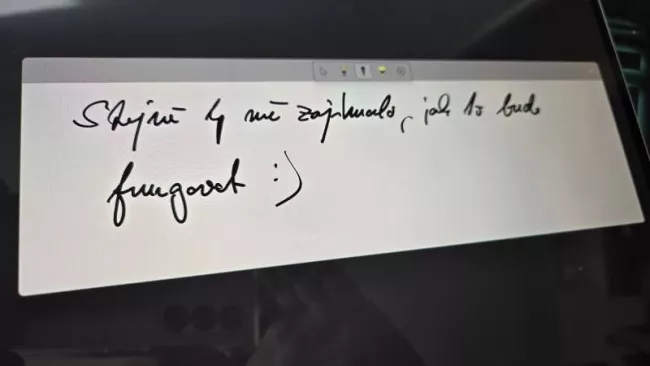 Stejně by mě zajímalo, jak to bude
fungovat :)